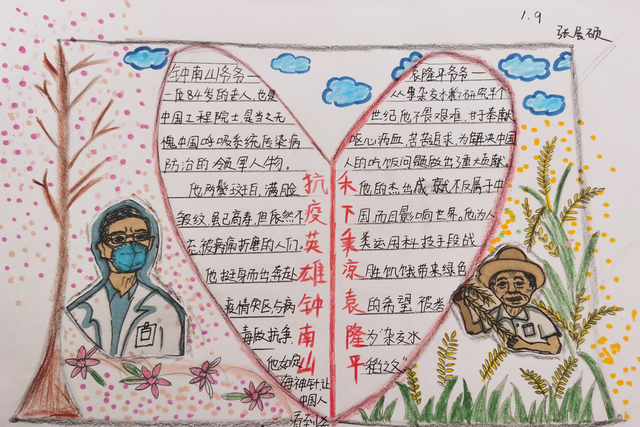 1.9
张展硕
钟南山爷爷一
一位84岁的老人,也是
中国工程院士是当之无
愧中国呼吸系统传染病
防治的领军人物。
他两鬓斑白,满脸
皱纹,虽已高寿,但依然不
忘被病痛折磨的人们。
他挺身而出奔赴
疫情灾区与病
毒做抗争,
他如定
海神针让
中国人
看到
抗疫英雄钟南山
禾下乘凉袁隆平
袁隆平爷爷一
从事杂交水稻研究半个
世纪,他不畏艰难,甘于奉献
呕心沥血,苦苦追求,为解决中国
人的吃饭问题做出了重大贡献。
他的杰出成就不仅属于中
国,而且影响世界。他为人
类运用科技手段战
胜饥饿带来绿色
的希望,被誉
为“杂交水
稻之父”